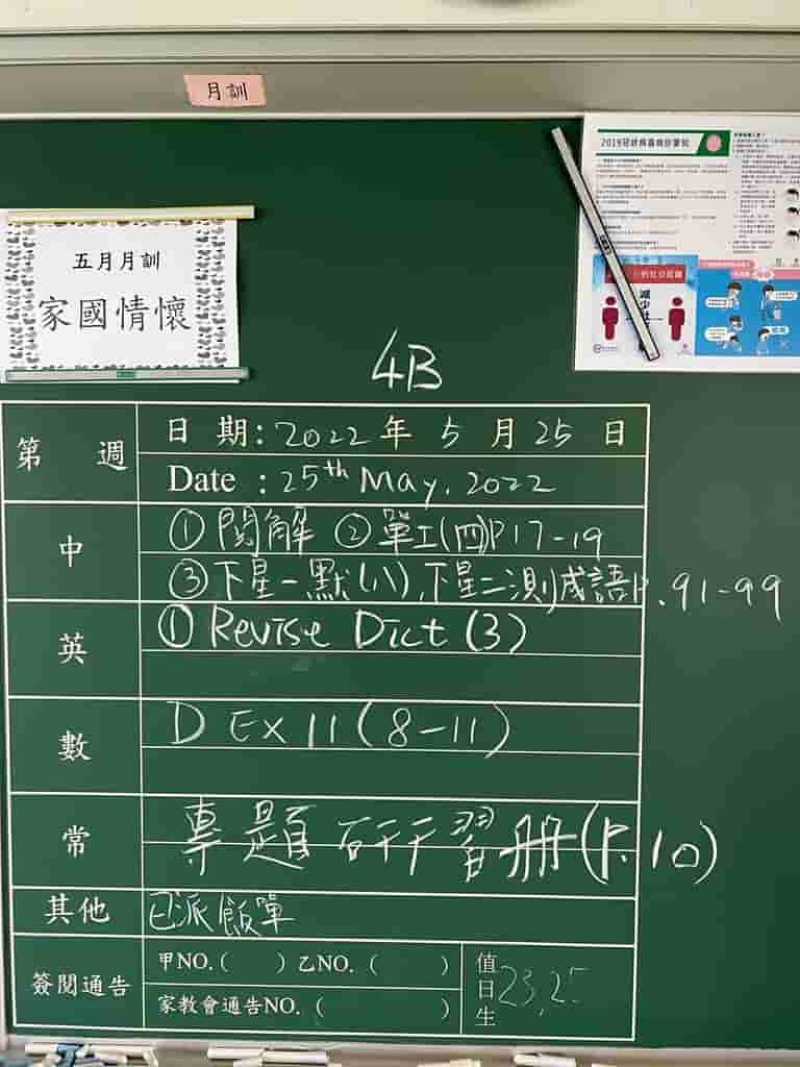 月訓
2019冠狀病毒病你要知
五月月訓
家國情懷
減少社
4B
第 週
日 期: 2022 年 5 月 25 日
Date : 25th May, 2022
中
① 閱解 ② 單工(四)P.17-19
③ 下星一默(八), 下星二測成語P. 91-99
英
① Revise Dict (3)
數
D Ex 11 (8-11)
常
專題研習冊(P.10)
其他
已派飯單
簽閱通告
甲NO. ( ) 乙NO. ( )
家教會通告NO. ( )
值日生
23, 25